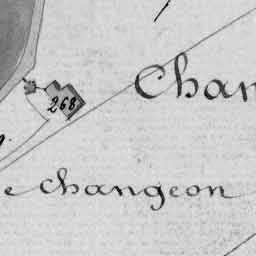 Chan
268
e changeon